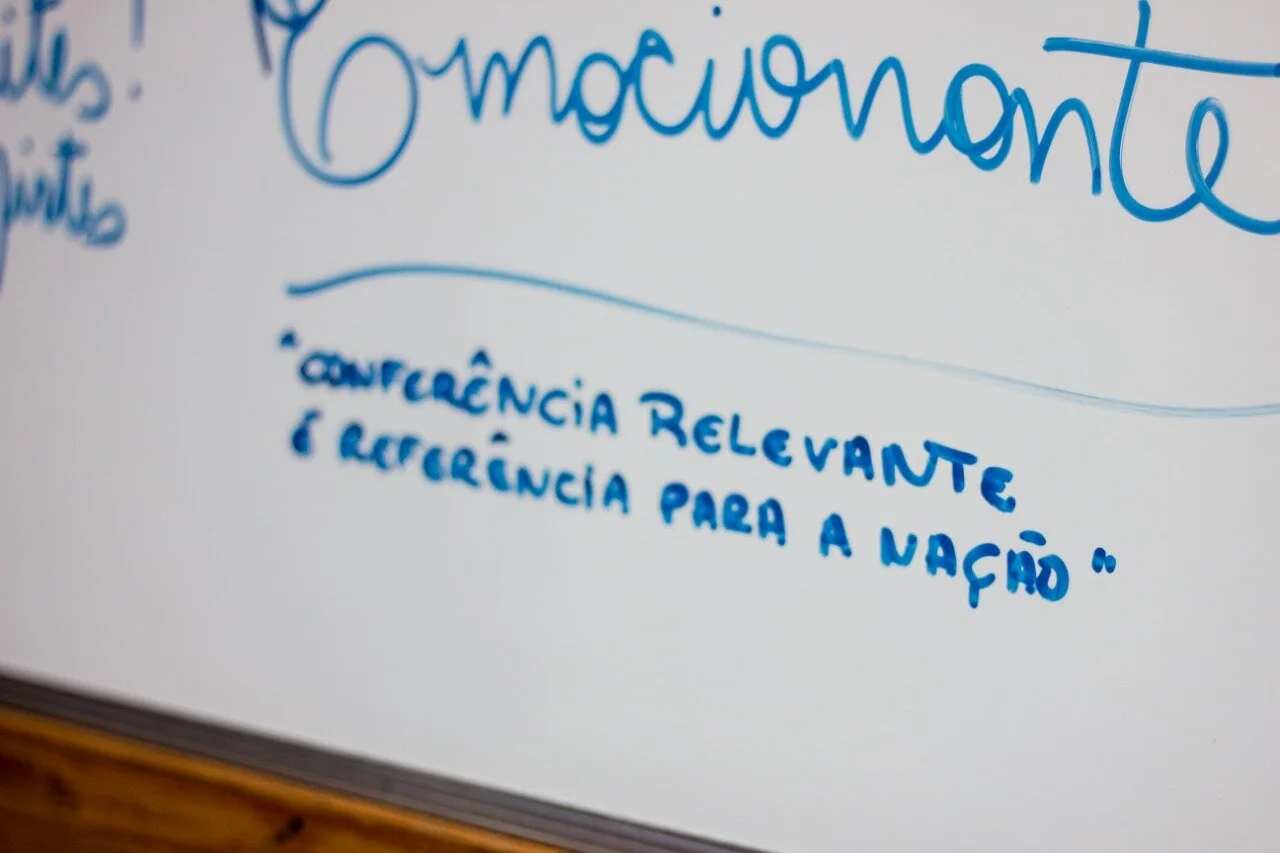 Emocionante
"CONFERÊNCIA RELEVANTE
E REFERÊNCIA PARA A NAÇÃO"